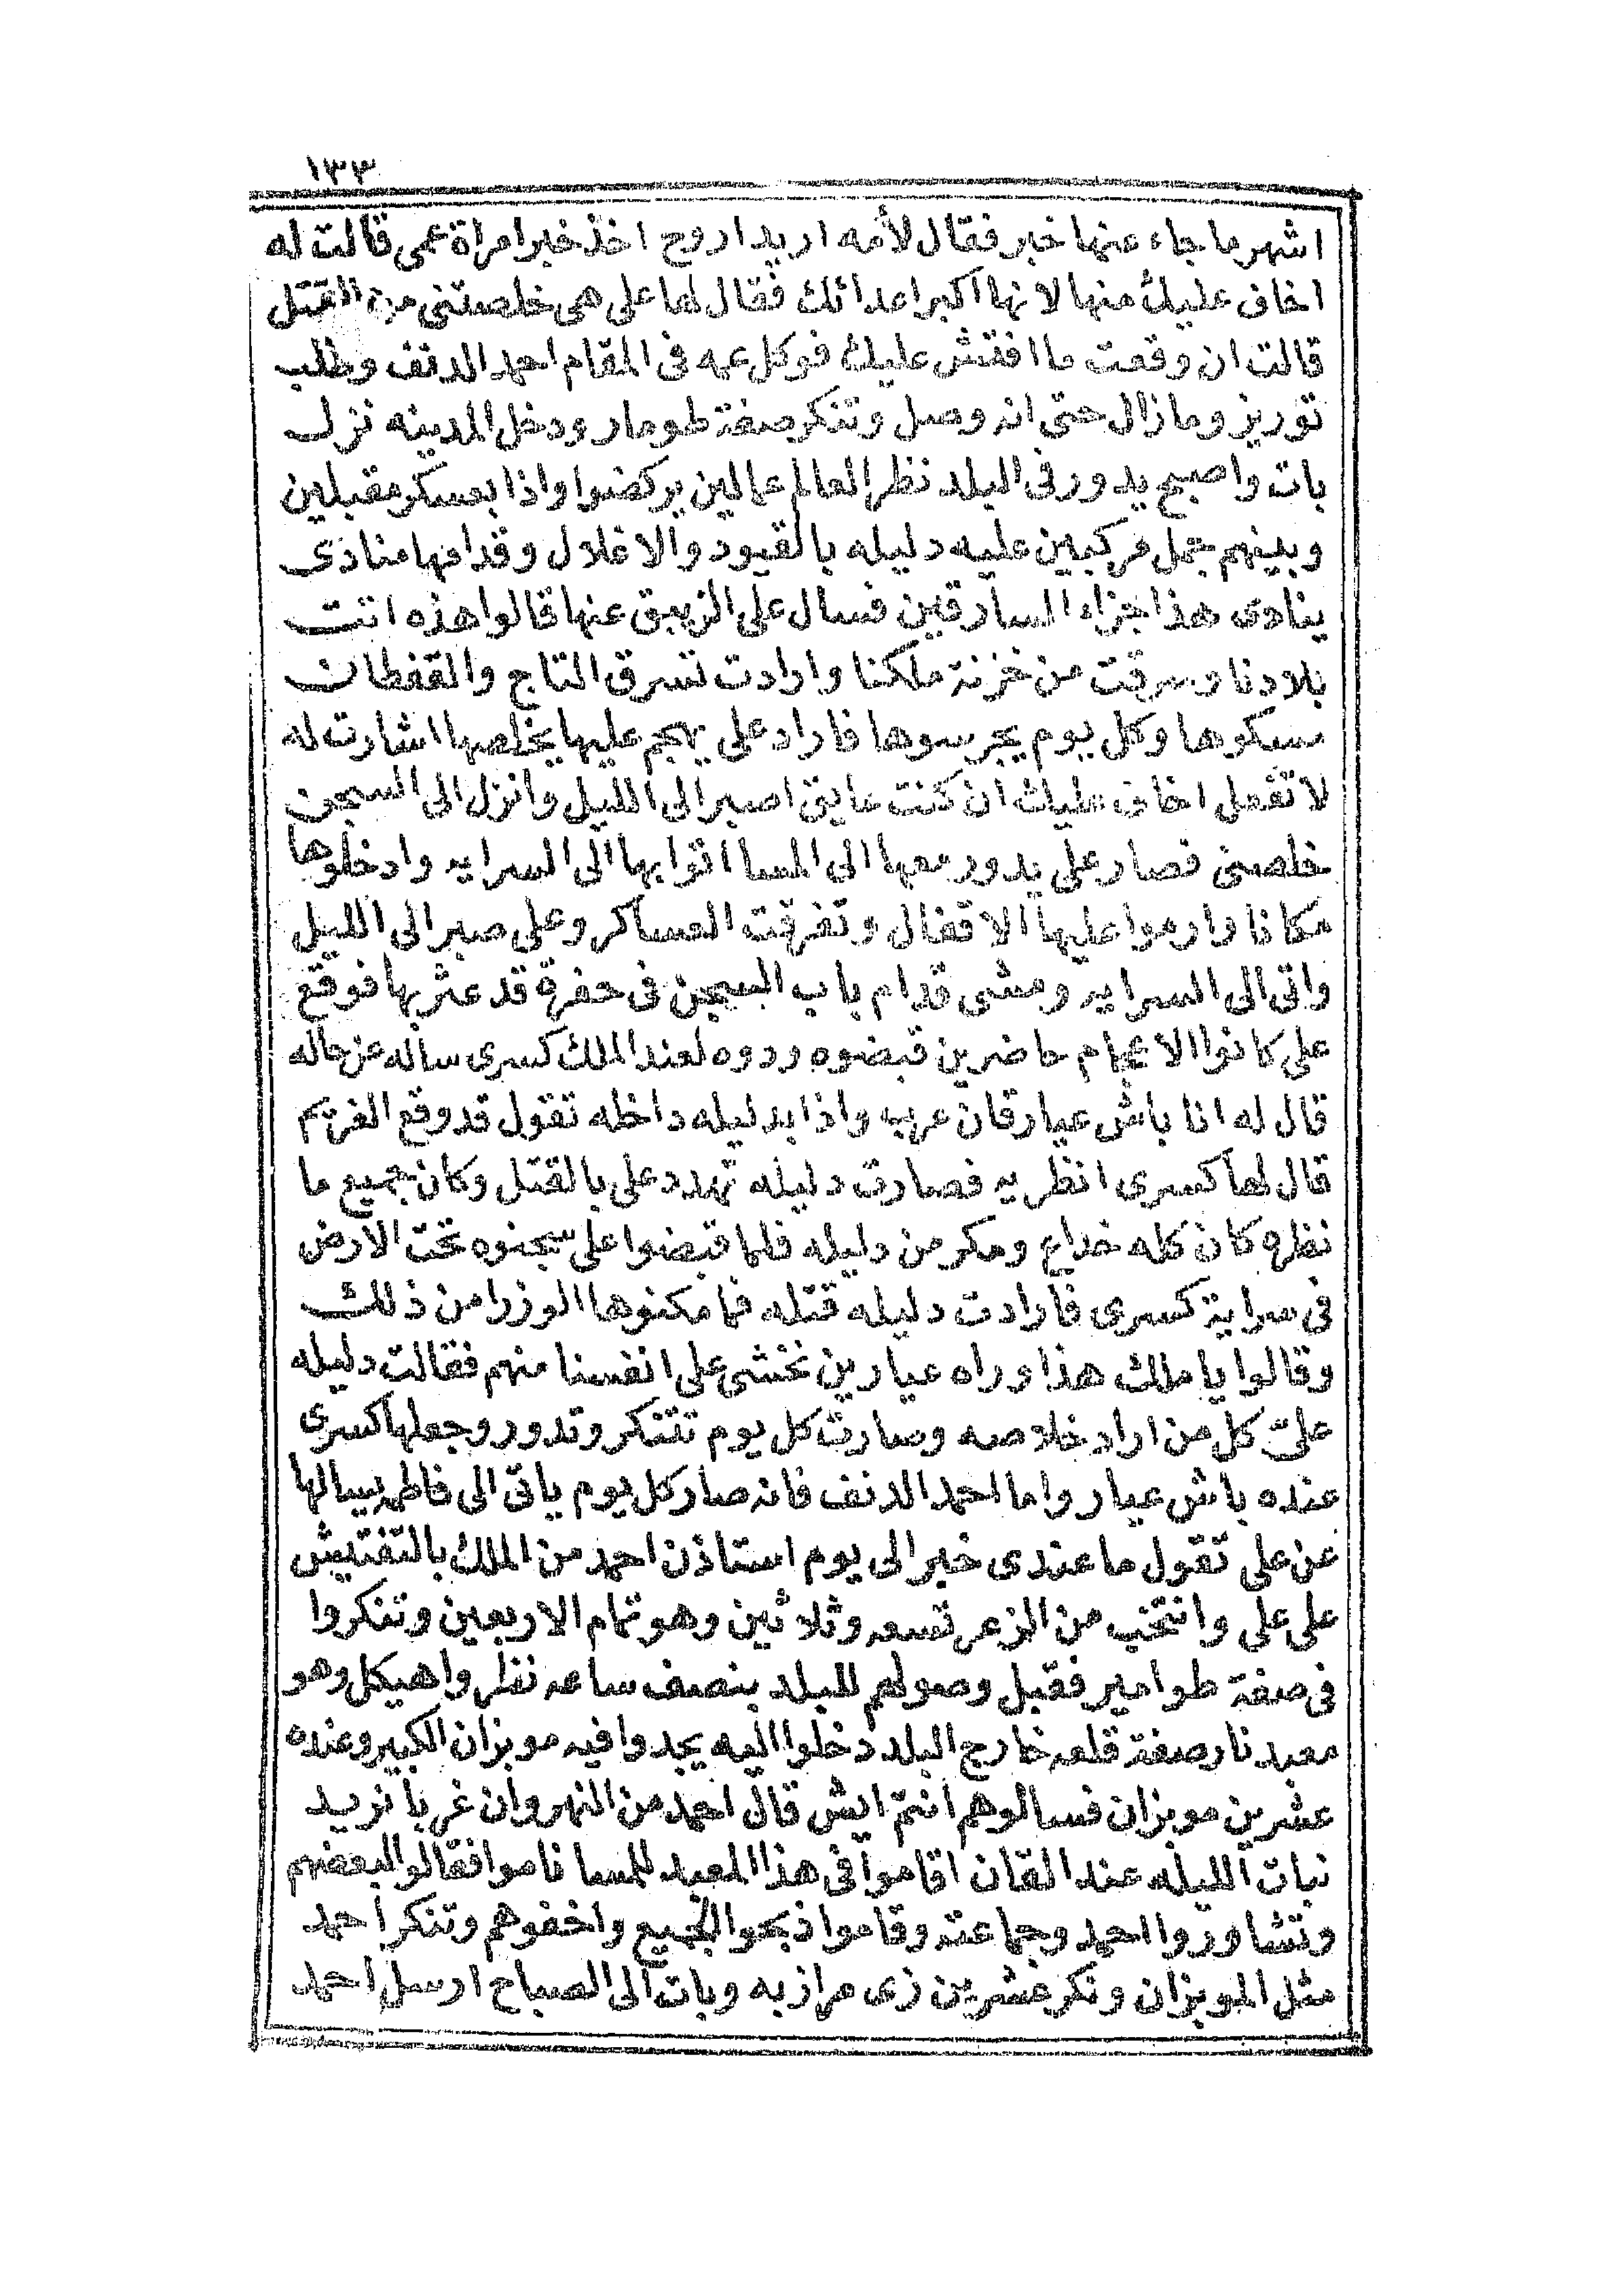 ١٣٣
اشهر ما جاء عنها خبر فقال لأمه اريد اروح اخذ خبر امراة عمى قالت له
اخاف عليك منها لانها اكبر اعدائك فقال لها على هى خلصتنى من القتل
قالت ان وقعت ما افتش عليك فوكل عمه فى المقام احمد الدنف وطلب
توريز وما زال حتى انه وصل وتنكر صفة طومار ودخل المدينه نزل
بات واصبح يدور فى البلد نظر العالم عمالين يركضوا واذا بعسكر مقبلين
وبينهم جمل مركبين عليه دليله بالقيود والاغلال وقدامها منادى
ينادى هذا جزاء السارقين فسال على الزيبق عنها قالوا هذه اتت
بلادنا وسرقت من خزنة ملكنا وارادت تسرق التاج والقفطان
مسكوها وكل يوم يجرسوها فاراد على يهجم عليها يخلصها اشارت له
لا تفعل اخاف عليك ان كنت عايق اصبر الى الليل وانزل الى السجن
خلصنى فصار على يدور معها الى المسا اتوا بها الى السرايه وادخلوها
مكانا وارموا عليها الاقفال وتفرقت العساكر وعلى صبر الى الليل
واتى الى السرايه ومشى قدام باب السجن فى حفرة قد عثر بها فوقع
على كانوا الاعجام حاضرين قبضوه ودوه لعند الملك كسرى ساله عن حاله
قال له انا باش عيار قان عرب واذا بدليله داخله تقول قد وقع الغريم
قال لها كسرى انظريه فصارت دليله تهدد على بالقتل وكان جميع ما
نظره كان كله خداع ومكر من دليله فلما قبضوا على سجنوه تحت الارض
فى سراية كسرى فارادت دليله قتله فما مكنوها الوزرا من ذلك
وقالوا يا ملك هذا وراه عيارين نخشى على انفسنا منهم فقالت دليله
علىّ كل من اراد خلاصه وصارت كل يوم تتنكر وتدور وجعلها كسرى
عنده باش عيار واما احمد الدنف فانه صار كل يوم ياتى الى فاطمه يسالها
عن على تقول ما عندى خبر الى يوم استاذن احمد من الملك بالتفتيش
على على وانتخب من الزعر تسعه وثلاثين وهو تمام الاربعين وتنكروا
فى صفة طوامير فقبل وصولهم للبلد بنصف ساعه نظروا هيكل وهو
معبد نار صفة قلعه خارج البلد دخلوا اليه يجدوا فيه موبزان الكبير وعنده
عشرين موبزان فسالوهم انتم ايش قال احمد من النهروان غربا نريد
نبات الليله عند القان اقاموا فى هذا المعبد للمسا ناموا فقالوا لبعضهم
وتشاوروا احمد وجماعته وقاموا ذبحوا الجميع واخفوهم وتنكر احمد
مثل الموبزان ونكر عشرين زى مرازبه وبات الى الصباح ارسل احمد